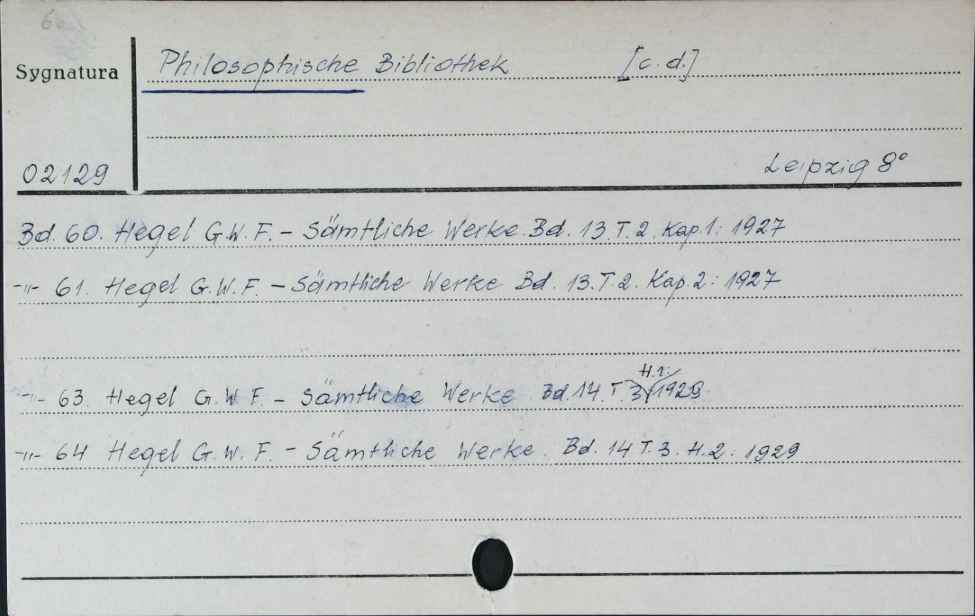 Sygnatura
Philosophische Bibliothek [c.d.]
02129
Leipzig 8°
Bd. 60. Hegel G.W.F. - Sämtliche Werke Bd. 13. T. 2. Kap. 1: 1927
-"- 61. Hegel G.W.F. - Sämtliche Werke Bd. 13. T. 2. Kap. 2: 1927
H.1:
-"- 63. Hegel G.W.F. - Sämtliche Werke Bd. 14. T. 3 1929
-"- 64 Hegel G.W.F. - Sämtliche Werke. Bd. 14 T. 3. H. 2. 1929